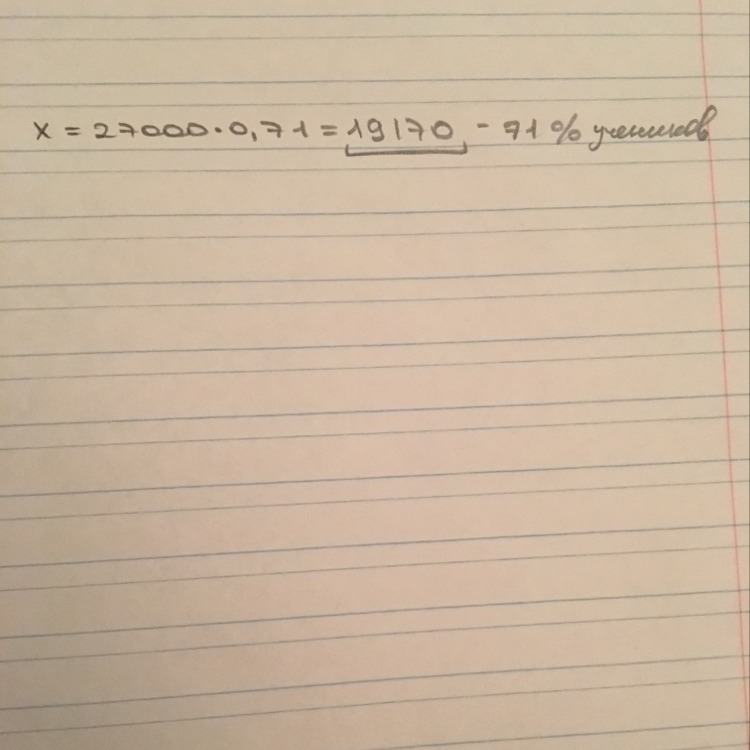 x = 27000 · 0,71 = 19170 - 71 % учеников